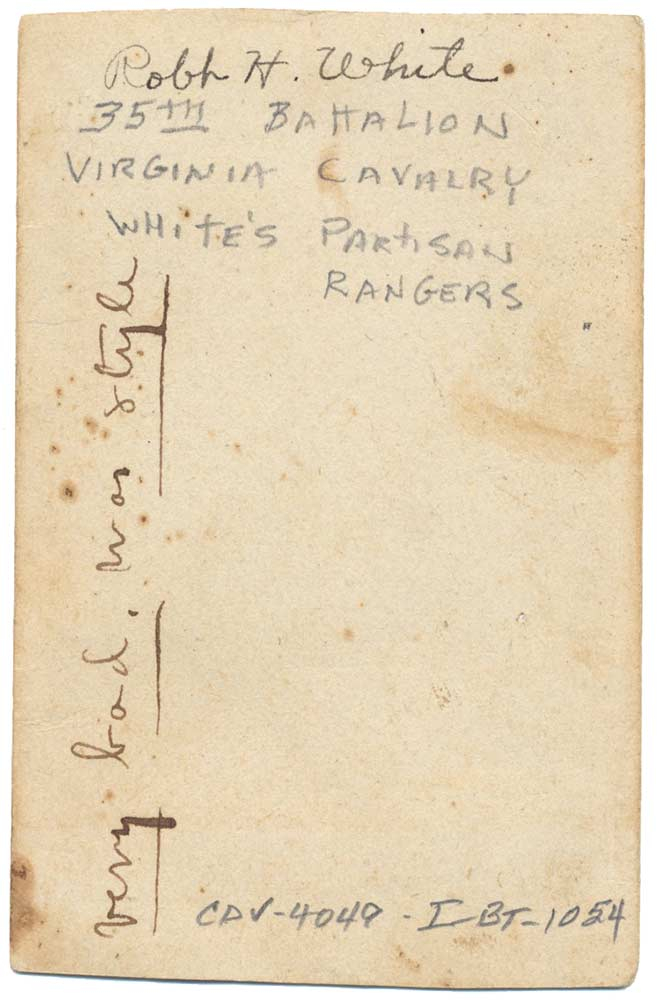 Robt H. White
35TH BATTALION
VIRGINIA CAVALRY
WHITE'S PARTISAN
RANGERS
very bad. no style
CDV-4049 - I-BT-1054